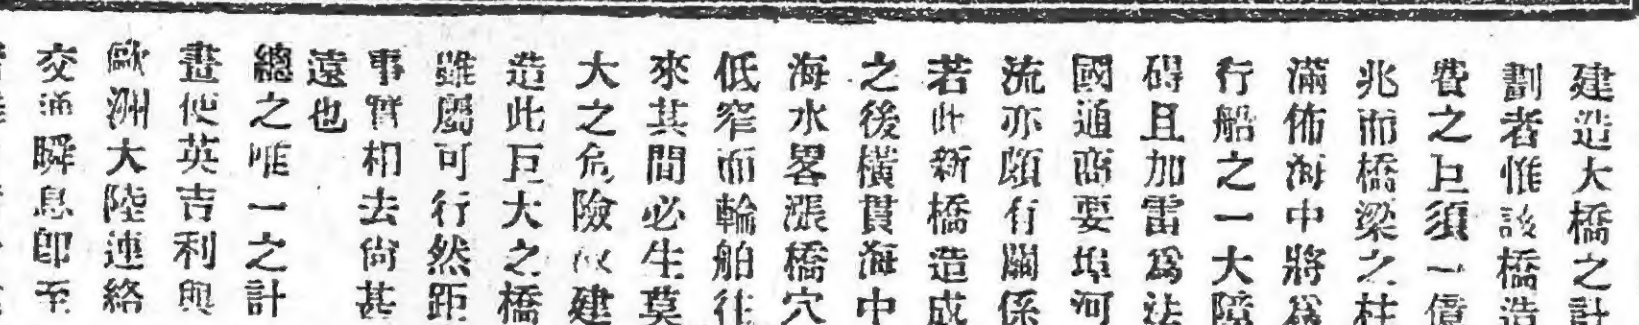 建造大橋之計
劃者惟該橋造
費之巨須一億
兆而橋梁之柱
滿佈海中將為
行船之一大障
碍且加雷爲法
國通商要埠河
流亦頗有關係
若此新橋造成
之後橫貫海中
海水畧漲橋穴
低窄而輪舶往
來其間必生莫
大之危險故建
造此巨大之橋
雖屬可行然距
事實相去尙甚
遠也
總之唯一之計
畫使英吉利與
歐洲大陸連絡
交通瞬息卽至